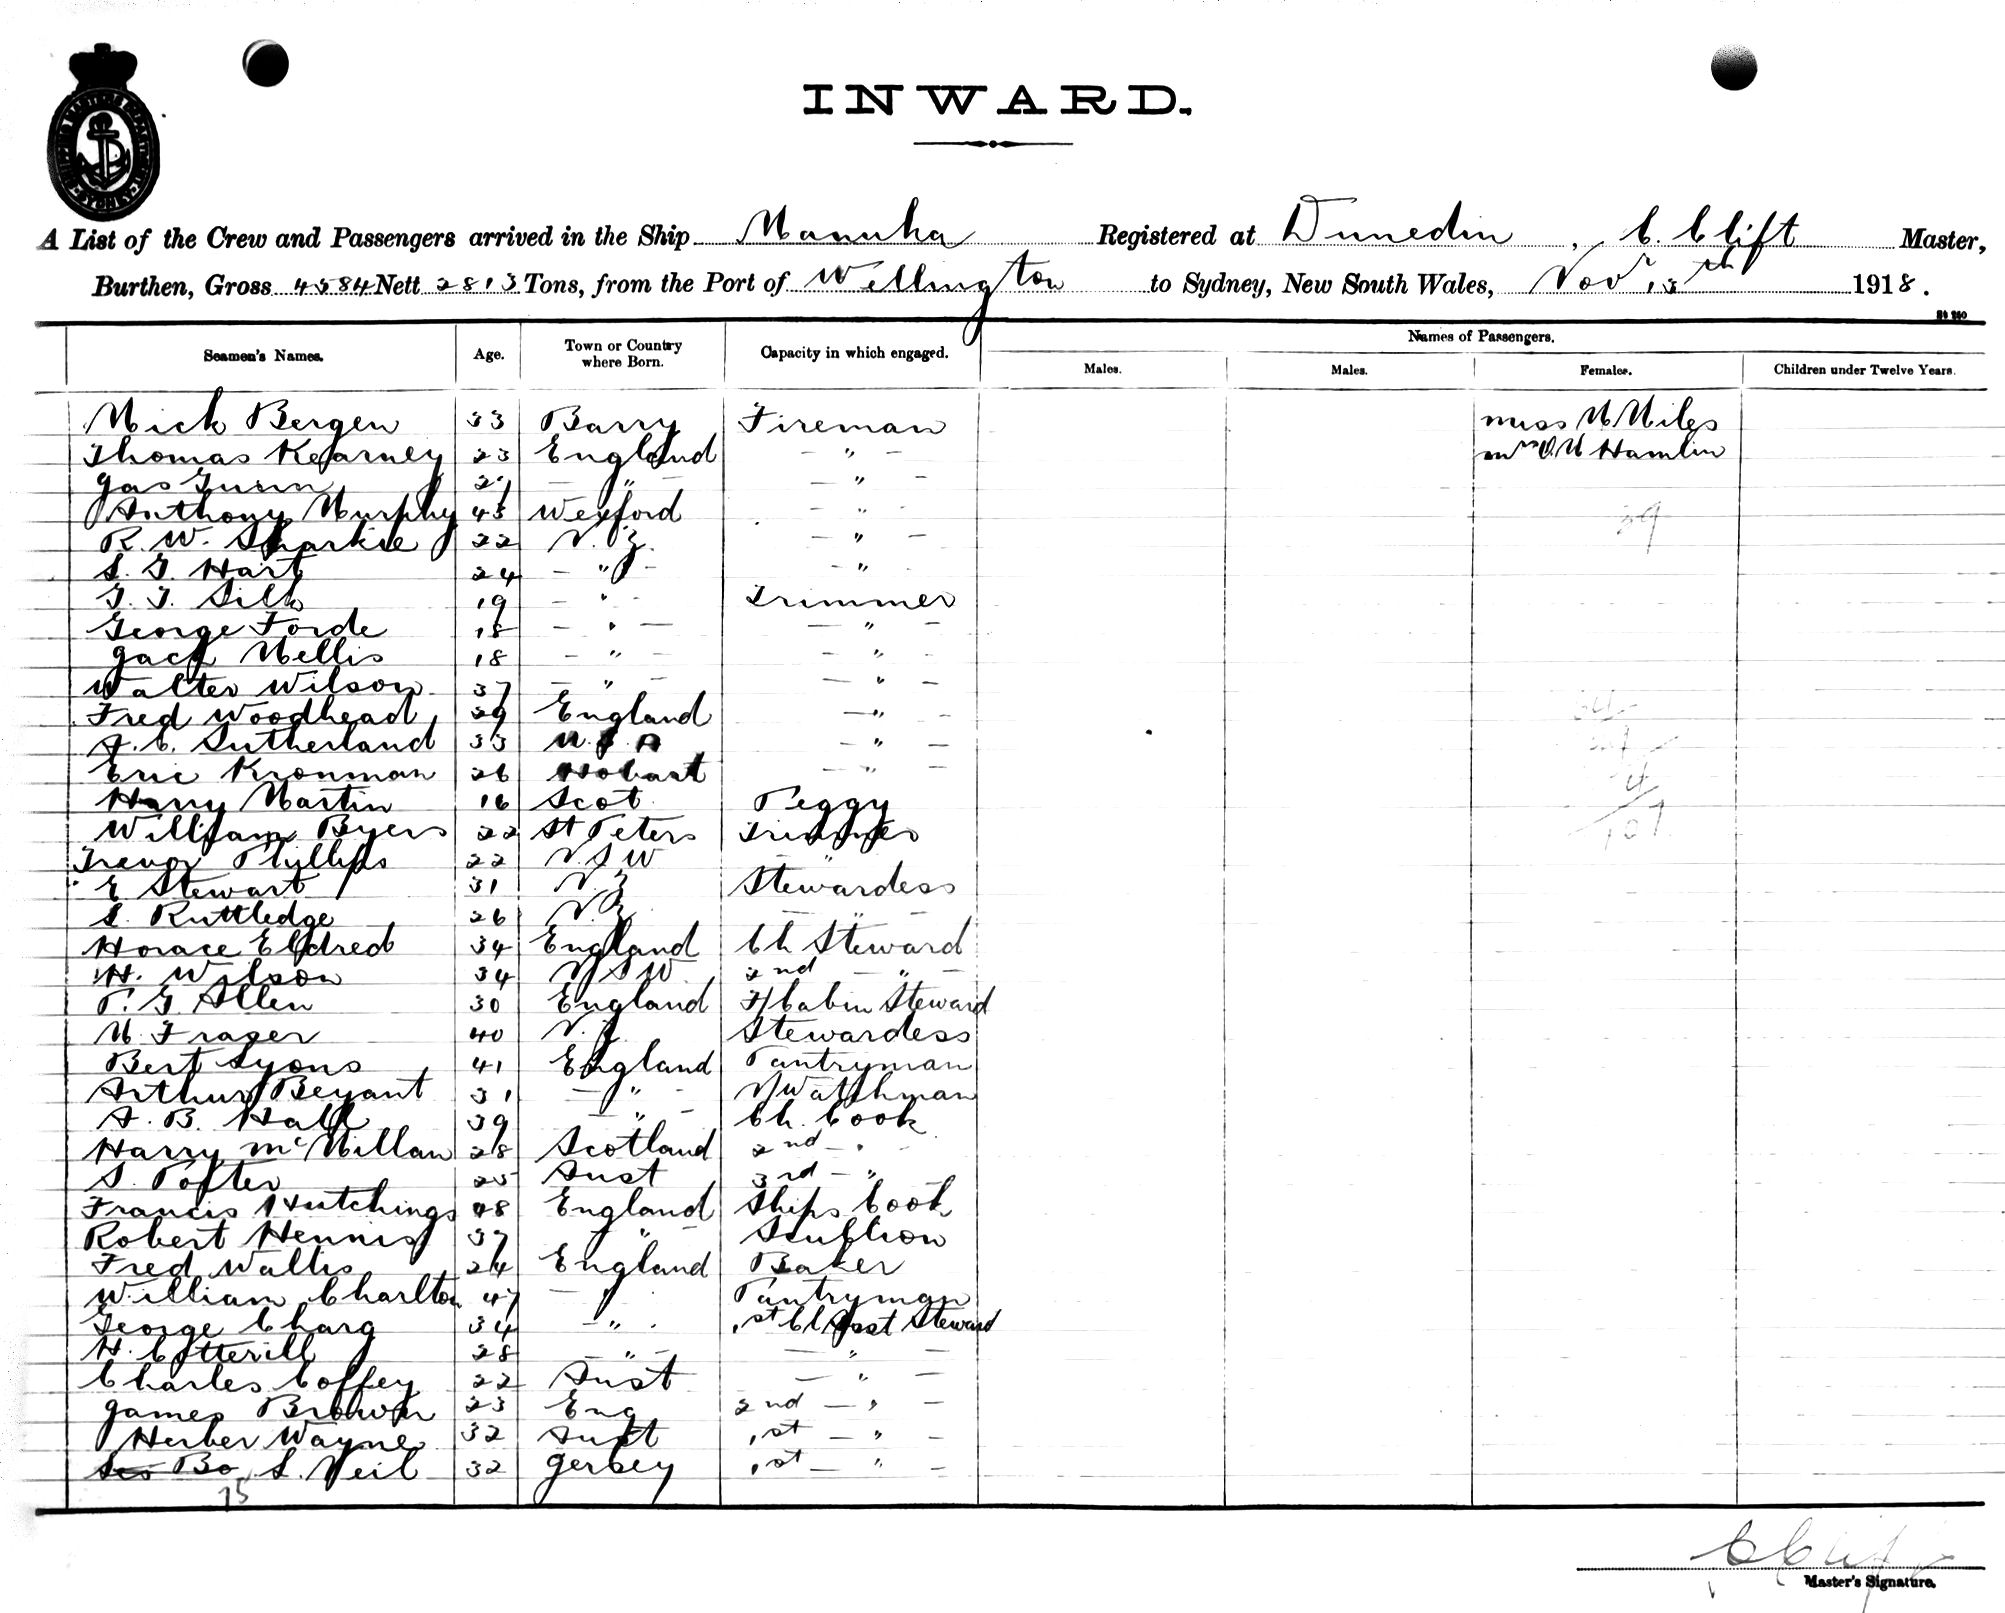 INWARD.
A List of the Crew and Passengers arrived in the Ship Manuka Registered at Dunedin, C. Clift Master,
Burthen, Gross 4584 Nett 2813 Tons, from the Port of Wellington to Sydney, New South Wales, Novr 13th 1918.
Names of Passengers.
Seamen's Names. Age. Town or Country where Born. Capacity in which engaged. Males. Males. Females. Children under Twelve Years.
Mick Bergen 33 Barry Fireman Miss M Miles
Thomas Kearney 23 England - " - Mrs O. M Hamlin
Jas 21 - " - - " -
Anthony Murphy 43 Wexford - " - 39
R. W. Sharkie 22 N. Z. - " -
S. G. Hart 24 - " - - " -
T. Silk 19 - " - Trimmer
George Forde 18 - " - - " -
Jack Mellis 18 - " - - " -
Walter Wilson 37 - " - - " -
Fred Woodhead 29 England - " -
A. C. Sutherland 33 U.S.A - " -
Eric Kronman 26 Hobart - " -
Harry Martin 16 Scot Peggy
William Byers 22 St Peters Trimmer
Trevor Phillips 22 N.S.W "
E Stewart 31 N.Z Stewardess
S. Ruttledge 26 N.Z - " -
Horace Eldred 34 England Ch Steward
H. Wilson 34 N S W 2nd - " -
P. G. Allen 30 England F/Cabin Steward
M. Fraser 40 N.Z. Stewardess
Bert Lyons 41 England Pantryman
Arthur Beyant 31 - " N/Watchman
A. B. Hall 39 - " - Ch. Cook
Harry McMillan 28 Scotland 2nd - " -
S. Porter 25 Aust 3rd - "
Francis Hutchings 48 England Ships Cook
Robert Hennis 37 - " - Scullion
Fred Wallis 24 England Baker
William Charlton 47 - " - Pantryman
George Charg 34 - " - 1st Cl Asst Steward
H. Cotterill 28 - " - - " -
Charles Coffey 22 Aust - " -
James Brown 23 Eng 2nd - " -
Herber Wayne 32 Aust 1st - " -
S. Neil 32 Jersey 1st - " -
75
C Clift
Master's Signature.